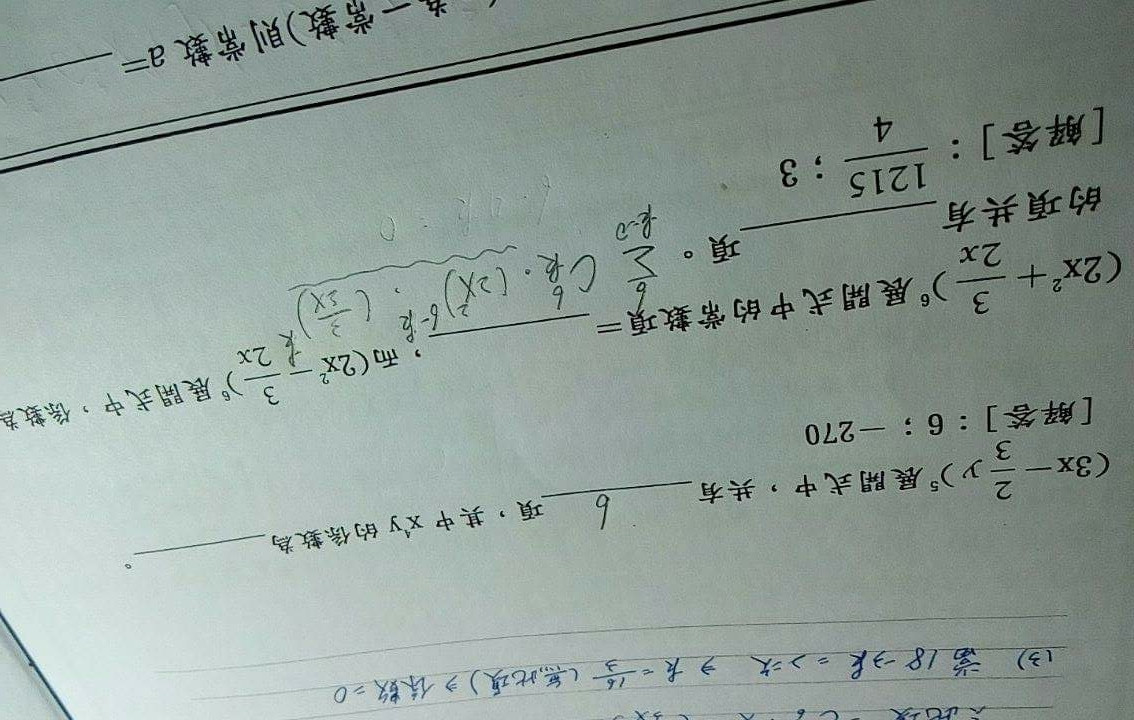 (3) 當 18-3k = 2次 ⇒ k = 16/3 (無此項) ⇒ 係數=0
(3x－2/3 y)⁵ 展開式中，共有 6 項，其中 x⁴y 的係數為________。
[解答]：6；－270
(2x²＋3/2x)⁶ 展開式中的常數項＝________，而(2x²－3/2x)⁶ 展開式中，係數為
的項共有________項。
6 Σ k=0 C 6 k · (2x²)^6-k · (3/2x)^k
[解答]：1215/4；3
為一常數)則常數 a=________